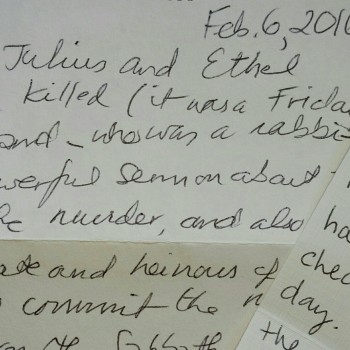 Feb. 6, 2016
Julius and Ethel
killed (it was a Friday
and – who was a rabbi –
powerful sermon about
the murder, and also
and heinous of
commit the
the Sabbath
ha
chec
day.
the